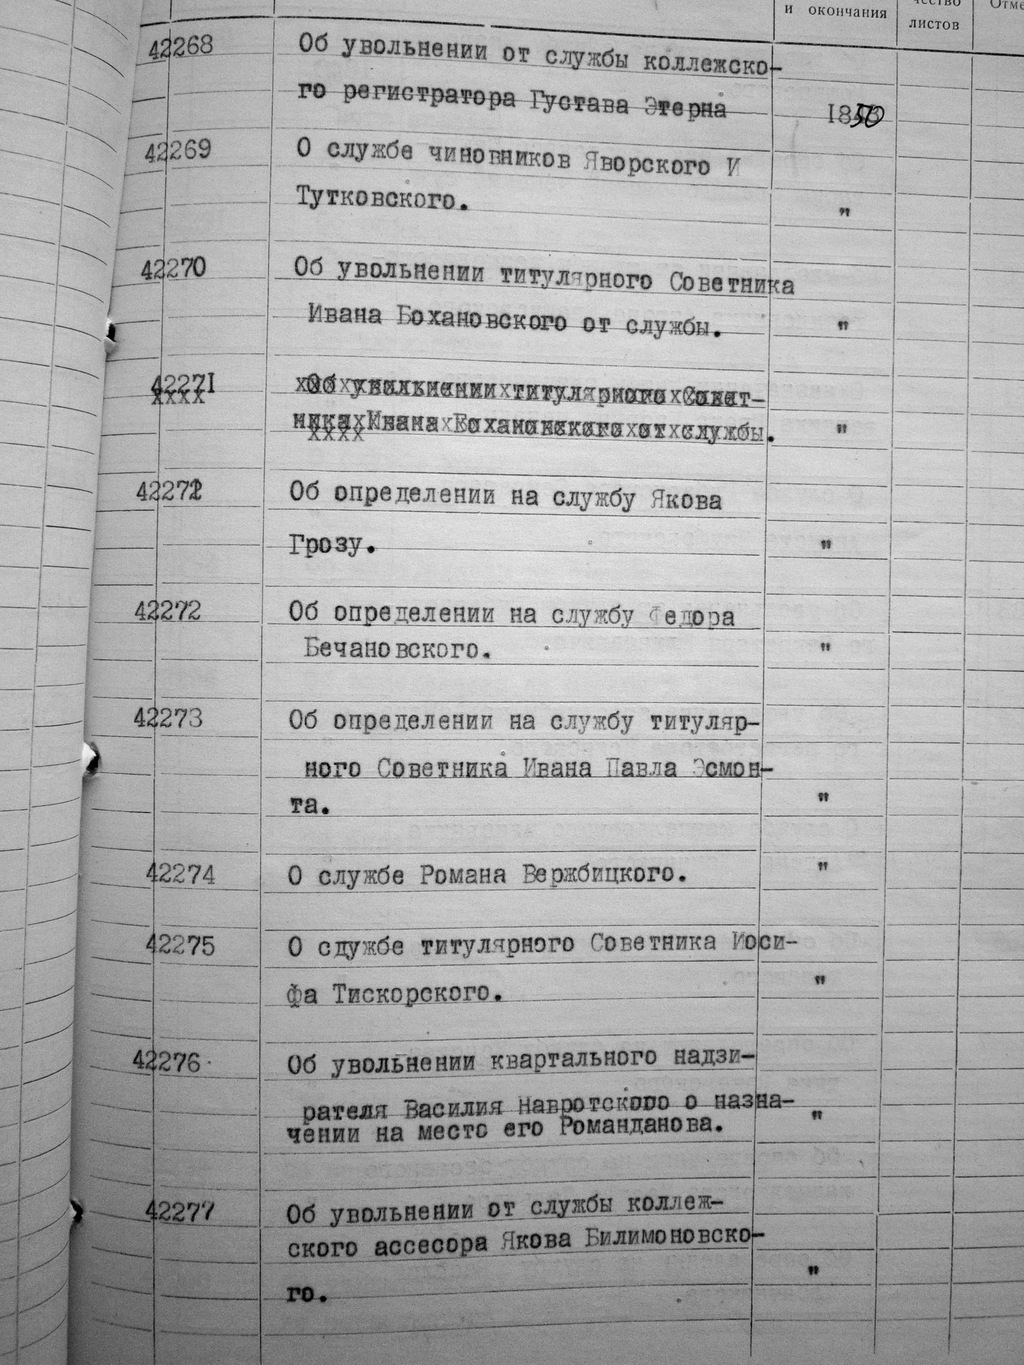 и окончания
чество
листов
Отме
42268 Об увольнении от службы коллежско-
го регистратора Густава Этерна 1850
42269 О службе чиновников Яворского И
Тутковского. "
42270 Об увольнении титулярного Советника
Ивана Бохановского от службы. "
42271 Об увольнении титулярного Совет-
ника Ивана Бохановского от службы. "
42271 Об определении на службу Якова
Грозу. "
42272 Об определении на службу Федора
Бечановского. "
42273 Об определении на службу титуляр-
ного Советника Ивана Павла Эсмон-
та. "
42274 О службе Романа Вержбицкого. "
42275 О сдужбе титулярного Советника Иоси-
фа Тискорского. "
42276 Об увольнении квартального надзи-
рателя Василия Навротского о назна-
чении на место его Романданова. "
42277 Об увольнении от службы коллеж-
ского ассесора Якова Билимоновско-
го. "